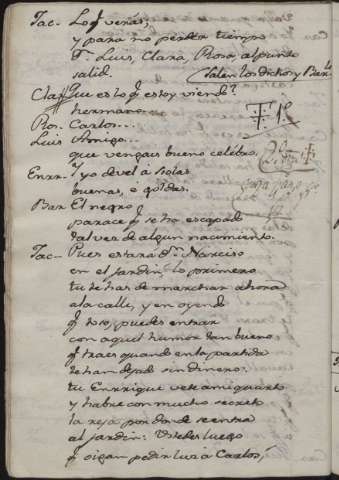 Jac. Lo q.e verás,
y para no perder tiempo
D. Luis, Clara, Rosa, al punto
salid. Salen los dichos y Bar.
Cla. Que es lo q.e estoy viendo?
hermano.
Ros. Carlos...
Luis Amigo...
que vengas bueno celebro.
Enrr. Y yo
buenas, e gordas.
Bar. El negro
parece q.e se ha escapado
tal vez de algun nacimiento.
Jac. Pues estará d.n Narciso
en el jardin, lo primero
tu te has de marchar ahora
a la calle, y en oyendo
q.e toso, puedes entrar
con aquel humor tan bueno
q.e traes quando en la partida
te han dejado sin dinero.
tu Enrrique vete a mi quarto
y habre con mucho secreto
la reja por donde se entra
al jardin: Ustedes luego
q.e oigan pedir luz a Carlos,